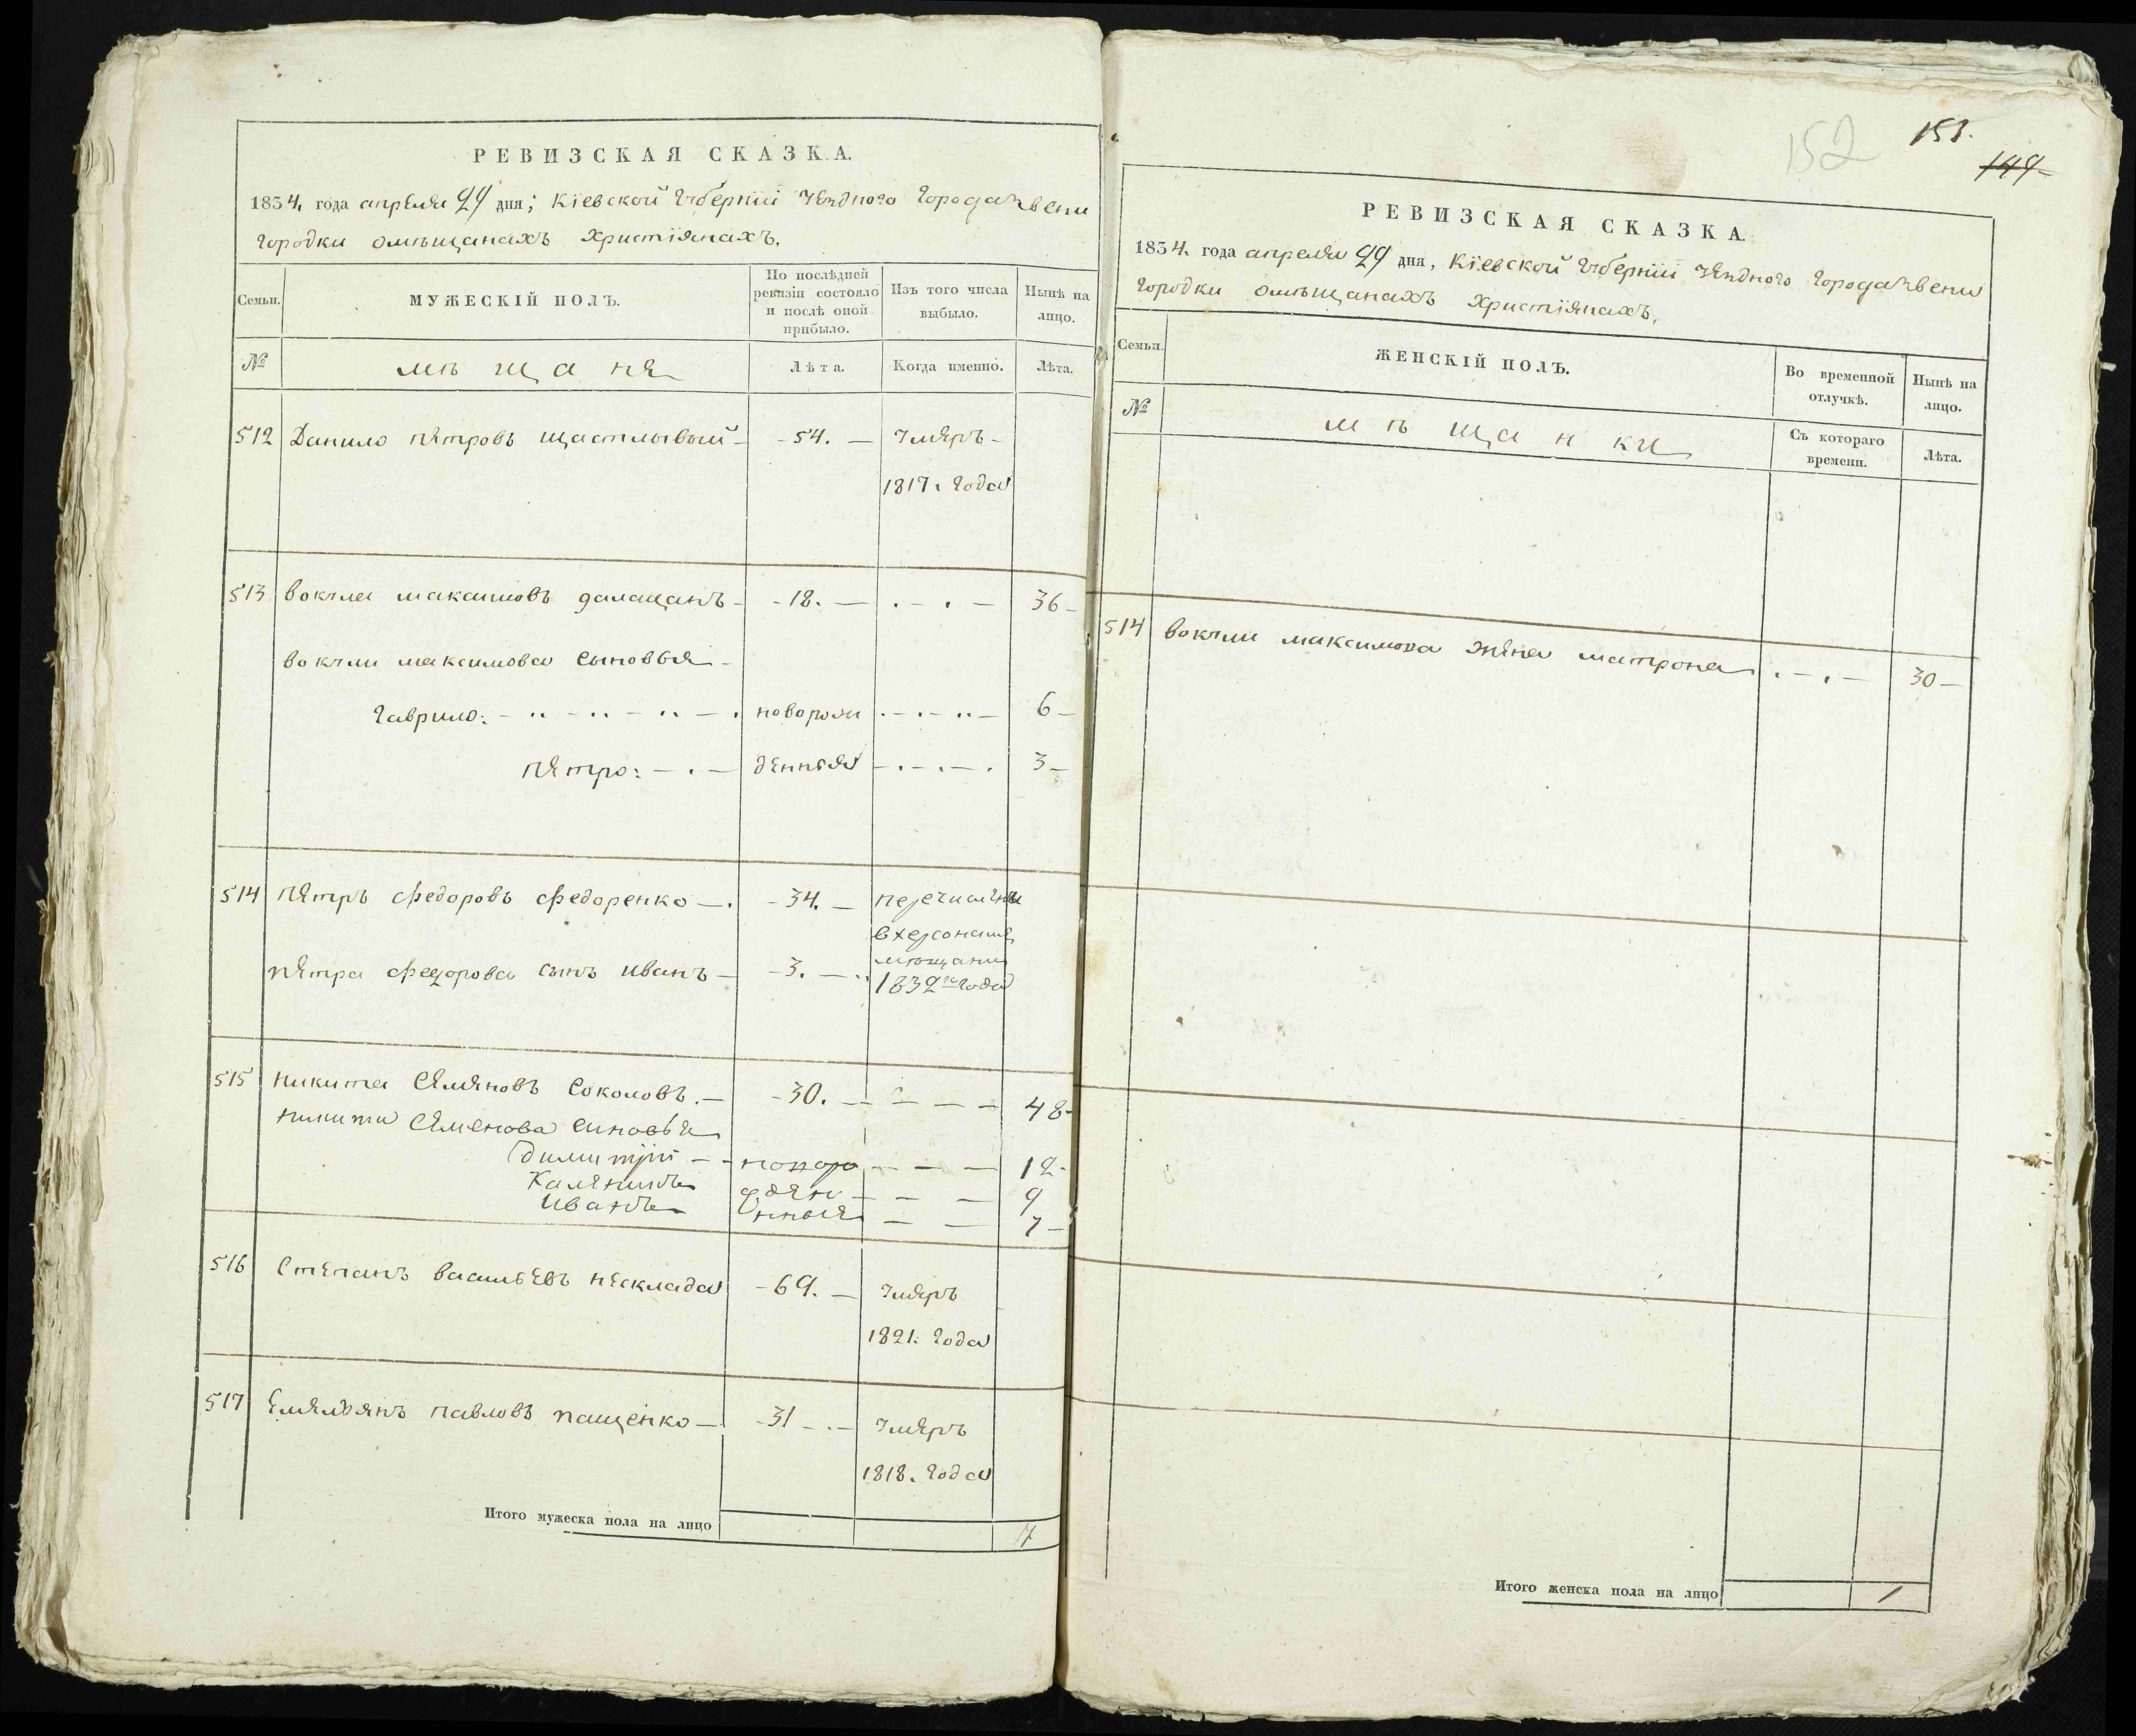 РЕВИЗСКАЯ СКАЗКА.
1834. года апреля 29 дня; Кіевской Губерніи Уезднаго Города Звени
городки омѣщанахъ христіянахъ.
Семьи.
МУЖЕСКІЙ ПОЛЪ.
По послѣдней ревизіи состояло и послѣ оной прибыло.
Изъ того числа выбыло.
Нынѣ на лицо.
№
мѣщане
Лѣта.
Когда именно.
Лѣта.
512 Данило петровъ щастливый - 54. - умеръ
1817. года
513 вокула максимовъ - 18. - 36
вокулы максимова сыновья
гаврило: новорож 6
петро: денныя 3
514 петръ федоровъ федоренко - 34. - перечислены
в херсонские
петра федорова сынъ иванъ - 3. - мещани
1832го года
515 никита семеновъ соколовъ. - 30. - 48
никиты семенова синовья
димитрій новоро 12
Каленикъ жден 9
Иванъ нныя 7
516 степанъ васильевъ нескладa - 69. - умеръ
1821. года
517 Емельянъ павловъ пащенко - 31 - умеръ
1818. года
Итого мужеска пола на лицо 7
152
153.
149
РЕВИЗСКАЯ СКАЗКА.
1834. года апреля 29 дня, Кіевской Губерніи Уезднаго Города Звени
городки омѣщанахъ христіянахъ.
Семьи.
ЖЕНСКІЙ ПОЛЪ.
Во временной отлучкѣ.
Нынѣ на лицо.
№
мѣщанки
Съ котораго времени.
Лѣта.
514 вокулы максимова жена матрона 30
Итого женска пола на лицо 1